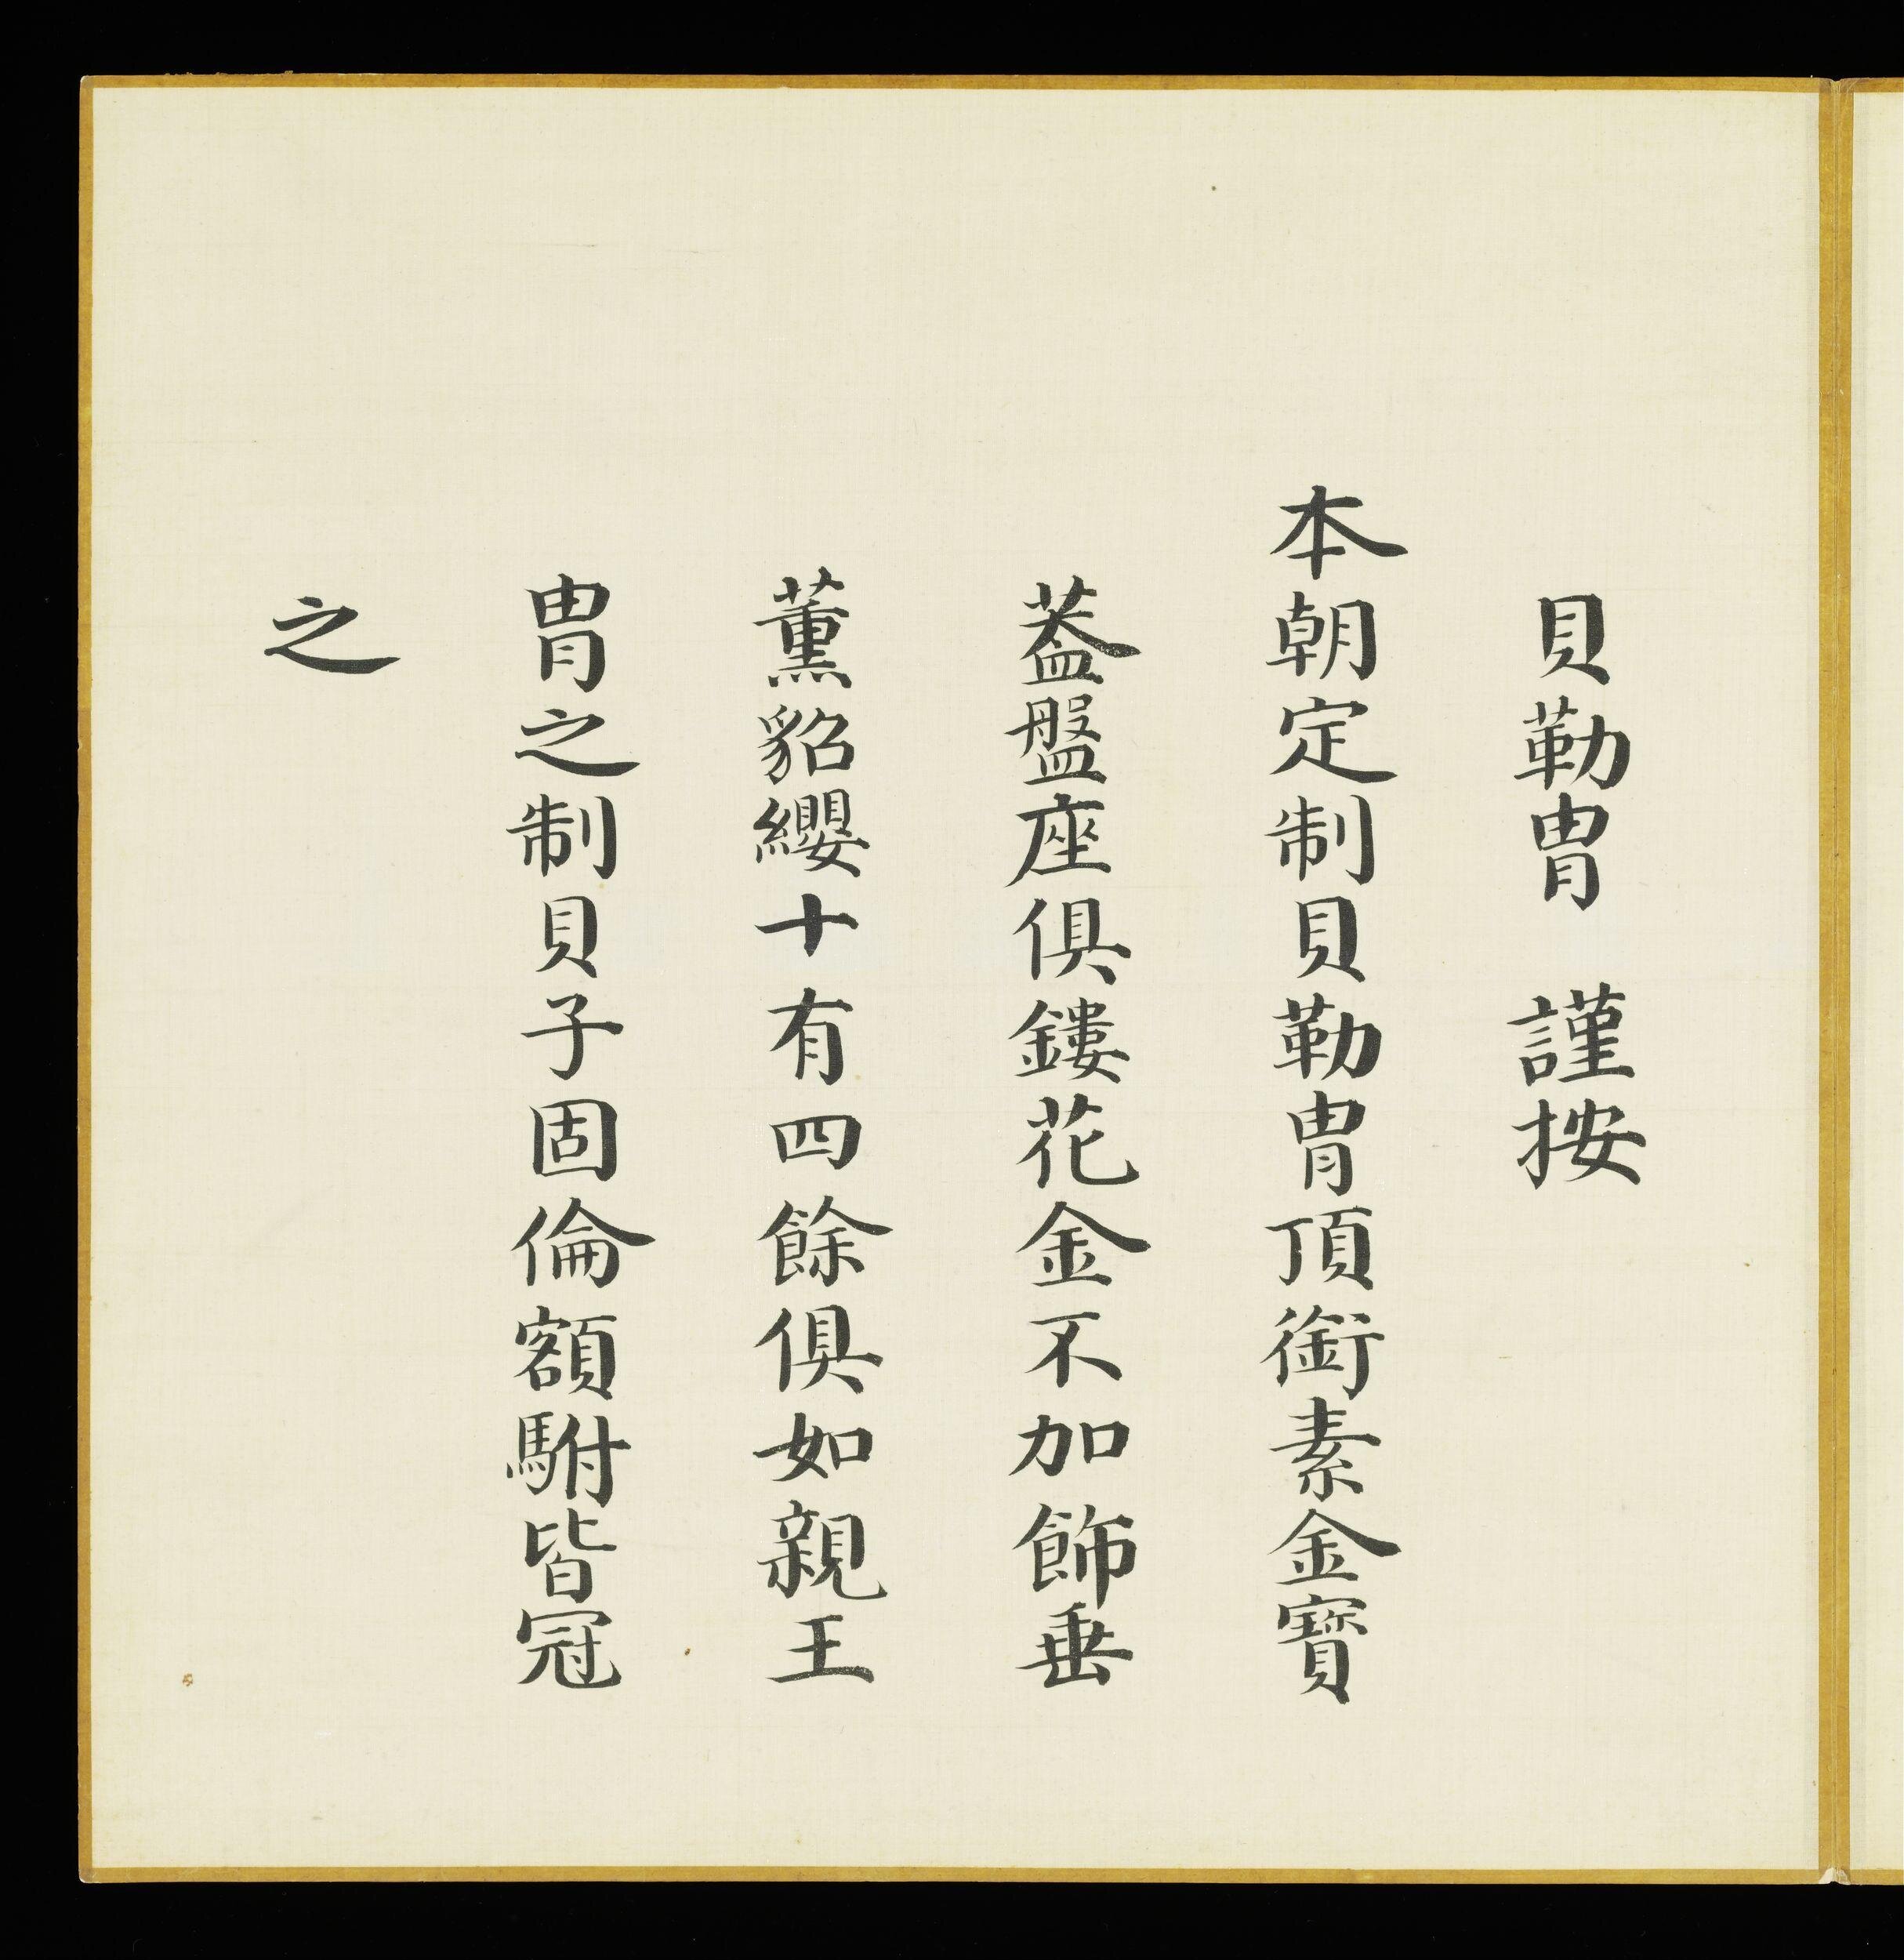 貝勒冑　謹按
本朝定制貝勒冑頂銜素金寶
葢盤座俱鏤花金不加飾垂
薰貂纓十有四餘俱如親王
冑之制貝子固倫額駙皆冠
之